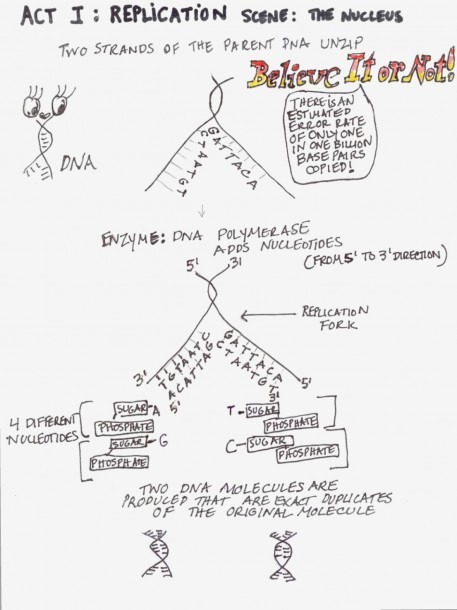 ACT I: REPLICATION SCENE: THE NUCLEUS
TWO STRANDS OF THE PARENT DNA UNZIP
Believe It or Not!
THERE IS AN
ESTIMATED
ERROR RATE
OF ONLY ONE
IN ONE BILLION
BASE PAIRS
COPIED!
DNA
CTAATGT
GATTACA
ENZYME: DNA POLYMERASE
ADDS NUCLEOTIDES
(FROM 5' TO 3' DIRECTION)
5' 3'
REPLICATION
FORK
GATTACA
CTAATGT
3'
5'
5'
3'
4 DIFFERENT
NUCLEOTIDES
SUGAR-A
PHOSPHATE
SUGAR-G
PHOSPHATE
T-SUGAR
PHOSPHATE
C-SUGAR
PHOSPHATE
TWO DNA MOLECULES ARE
PRODUCED THAT ARE EXACT DUPLICATES
OF THE ORIGINAL MOLECULE